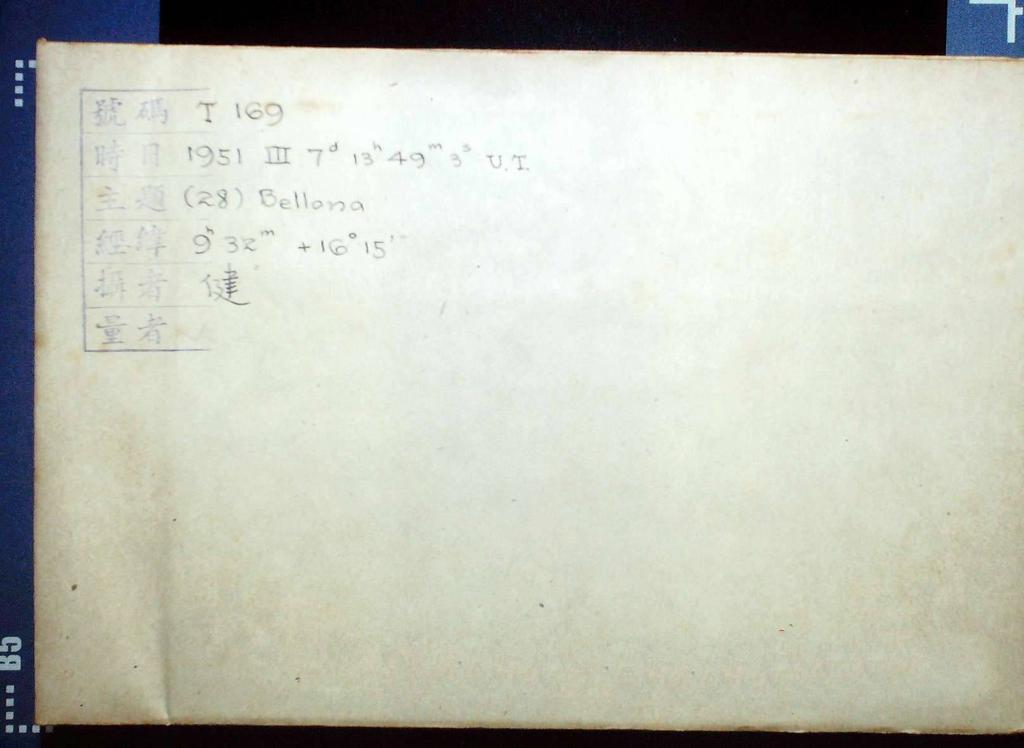 號碼 T 169
時日 1951 III 7ᵈ 13ʰ 49ᵐ 3ˢ U.T.
主題 (28) Bellona
經緯 9ʰ 32ᵐ +16° 15'
攝者 健
量者
B5